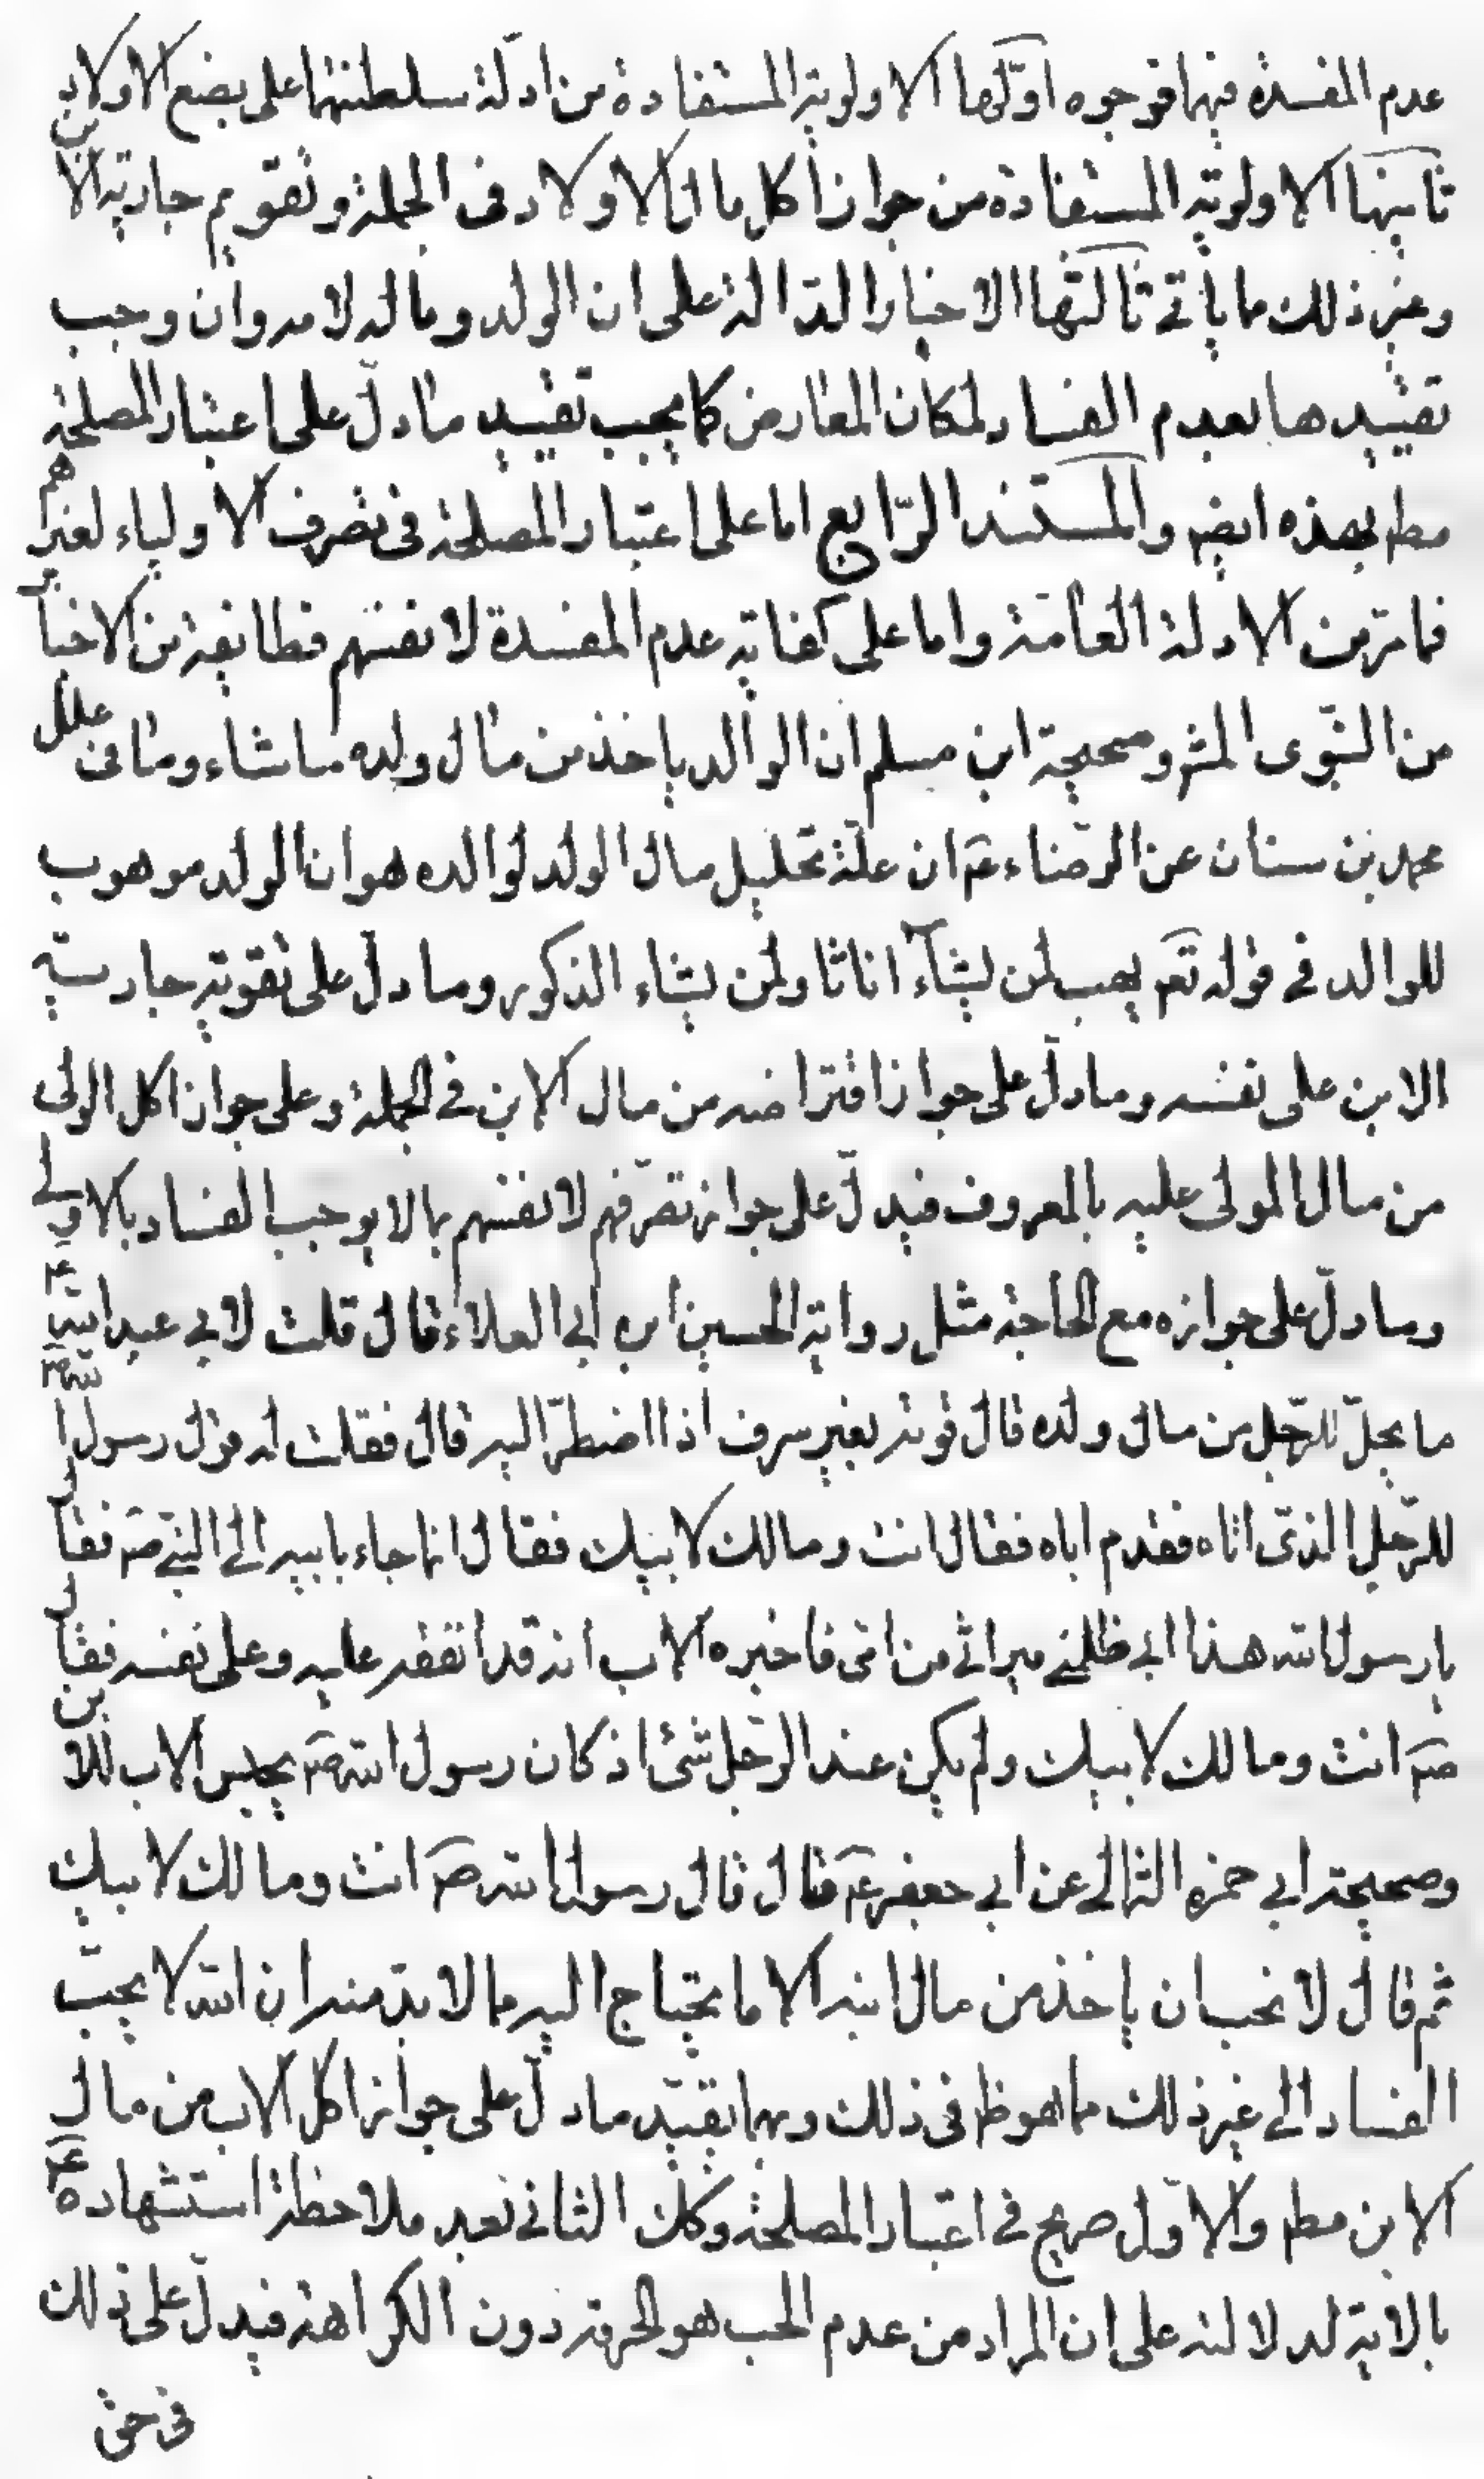 عدم المفسدة فيهما فوجوه اوّلها الاولوية المستفادة من ادلّة سلطنتهما على بضع الاولاد
ثانيها الاولويّة المستفادة من جواز اكل مال الاولاد فى الجملة و تقويم جارية الابن
و غير ذلك ما ياتى ثالثها الاخبار الدّالة على ان الولد و ماله لابيه و ان وجب
تقييدها بعدم الفساد لمكان المعارض كما يجب تقييد ما دلّ على اعتبار المصلحة
مطم بهذه ايضم و المستند الرّابع اما على اعتبار المصلحة فى تصرف الاولياء لغيرهم
فما مرّ من الادلة العامّة و اما على كفاية عدم المفسدة لانفسهم فطايفة من الاخبار
من النبّوى المشهو صحيحة ابن مسلم ان الوالد ياخذ من مال ولده ما شاء و ما فى علل
محمد بن سنان عن الرضاء عم ان علّة تحليل مال الولد لوالده هو ان الولد موهوب
للوالد فى قوله تعم يهب لمن يشآء اناثا و لمن يشاء الذكور و ما دلّ على تقويم جارية
الابن على نفسه و ما دلّ على جواز اقتراضه من مال الابن فى الجملة و على جواز اكل الولى
من مال المولى عليه بالمعروف فيدلّ على جواز تصرّفهم لانفسهم بما لا يوجب الفساد بالاولى
و ما دلّ على جوازه مع الحاجة مثل رواية الحسين ابن ابى العلاء قال قلت لابى عبد الله عم
ما يحلّ للرّجل من مال ولده قال قوته بغير سرف اذا اضطرّ اليه قال فقلت له قول رسول الله صم
للرّجل الذى اتاه فقدم اباه فقال انت و مالك لابيك فقال انما جاء بابيه الى النبى صم فقال
يا رسول الله هذا ابى ظلمنى ميراثى من امّى فاخبره الاب انه قد انفقه عليه و على نفسه فقال
صم انت و مالك لابيك و لم يكن عند الرّجل شئ اذ كان رسول الله صم يحبس الاب للابن
و صحيحة ابى حمزه الثمالى عن ابى جعفر عم قال قال رسول الله صم انت و مالك لابيك
ثم قال لا نحب ان ياخذ من مال ابنه الا ما يحتاج اليه مما لا بدّ منه ان الله لا يحبّ
الفساد الى غير ذلك مما هو ظم فى ذلك و بهما يقيّد ما دلّ على جواز اكل الاب من مال
الابن مطم و الاوّل صريح فى اعتبار المصلحة و كك الثانى بعد ملاحظة استشهاده عم
بالاية لدلالته على ان المراد من عدم الحب هو الحرمة دون الكراهة فيدلّ على ذلك
فى حق